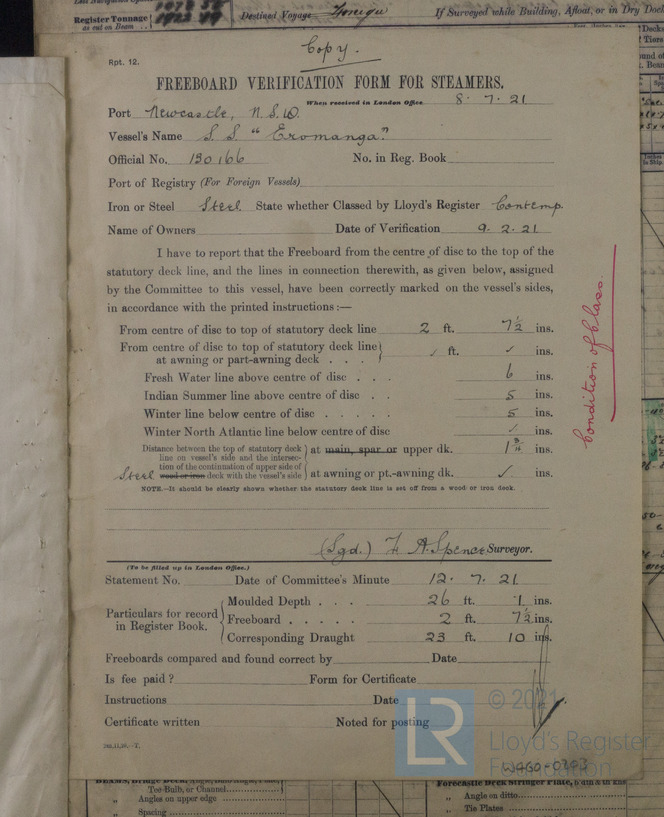 Register Tonnage
as cut on Beam
Destined Voyage Foreign
If Surveyed while Building, Afloat, or in Dry Dock
Copy.
Rpt. 12.
FREEBOARD VERIFICATION FORM FOR STEAMERS.
When received in London Office 8. 7. 21
Port Newcastle, N.S.W.
Vessel's Name S.S. "Eromanga."
Official No. 130166 No. in Reg. Book
Port of Registry (For Foreign Vessels)
Iron or Steel Steel State whether Classed by Lloyd's Register Contemp.
Name of Owners Date of Verification 9. 2. 21
I have to report that the Freeboard from the centre of disc to the top of the
statutory deck line, and the lines in connection therewith, as given below, assigned
by the Committee to this vessel, have been correctly marked on the vessel's sides,
in accordance with the printed instructions:—
From centre of disc to top of statutory deck line 2 ft. 7½ ins.
From centre of disc to top of statutory deck line
at awning or part-awning deck . . . ✓ ft. ✓ ins.
Fresh Water line above centre of disc . . . 6 ins.
Indian Summer line above centre of disc . . 5 ins.
Winter line below centre of disc . . . . . 5 ins.
Winter North Atlantic line below centre of disc ✓ ins.
Distance between the top of statutory deck
line on vessel's side and the intersec-
tion of the continuation of upper side of
Steel wood or iron deck with the vessel's side
at main, spar or upper dk. ins.
at awning or pt.-awning dk. ✓ ins.
NOTE.—It should be clearly shown whether the statutory deck line is set off from a wood or iron deck.
Condition of Class.
(Sgd.) F. A. Spence Surveyor.
(To be filled up in London Office.)
Statement No. Date of Committee's Minute 12. 7. 21
Particulars for record
in Register Book.
Moulded Depth . . . 26 ft. 1 ins.
Freeboard . . . . . 2 ft. 7½ ins.
Corresponding Draught 23 ft. 10 ins.
Freeboards compared and found correct by Date
Is fee paid? Form for Certificate
Instructions Date
Certificate written Noted for posting
© 2021
LR
Lloyd's Register
Foundation
W960-0303
Tee-Bulb, or Channel
Angles on upper edge
Spacing
Forecastle Deck Stringer Plate,
Angle on ditto
Tie Plates